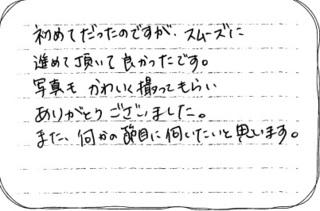 初めてだったのですが、スムーズに
進めて頂いて良かったです。
写真も かわいく撮ってもらい
ありがとうございました。
また、何かの節目に伺いたいと思います。